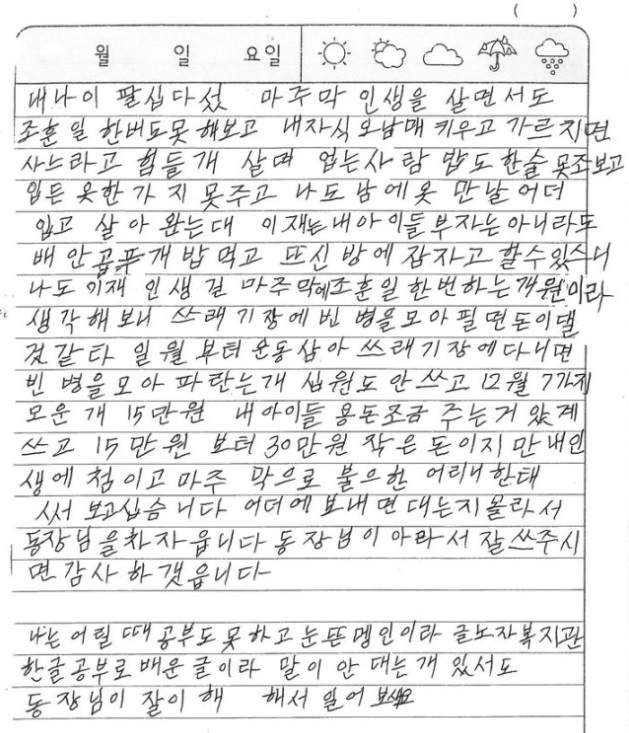 ( )
월 일 요일
내나이 팔십다섯 마주막 인생을 살면서도
조훈일 한버도못 해보고 내자식 오남매 키우고 가르치면
사느라고 힘들개 살며 업는사람 밥도한술 못조보고
입든 옷한가지 못주고 나도 남에옷 만날 어더
입고 살아 완는대 이재는 내아이들 부자는아니라도
배 안곱푸개 밥먹고 뜨신 방에 잠자고 할수있스니
나도 이재 인생길 마주막에 조훈일 한번하는개 원이라
생각해보니 쓰래기장에 빈 병을모아 필떤돈이댈
겄같타 일월 부터 운동삼아 쓰래기장에다니면
빈 병을모아 파란는개 십원도 안쓰고 12월 7가지
모운개 15만원 내아이들 용돈조금 주는거 았계
쓰고 15만원 보터 30만원 작은 돈이지만 내인
생에 첨이고 마주 막으로 불으한 어리니한태
써 보고십슴니다 어더에 보내면대는지몰라서
동장님을차자읍니다 동장님이아라서 잘쓰주시
면감사하갯읍니다
나는어릴때공부도못하고눈뜬멩인이라 글노자복지관
한글공부로배운글이라 말이 안 대는개 있서도
동장님이 잘이해 해서 일어보세요